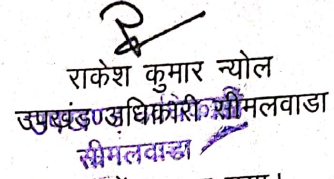 राकेश कुमार न्योल
उपखंड अधिकारी सीमलवाडा
सीमलवाडा